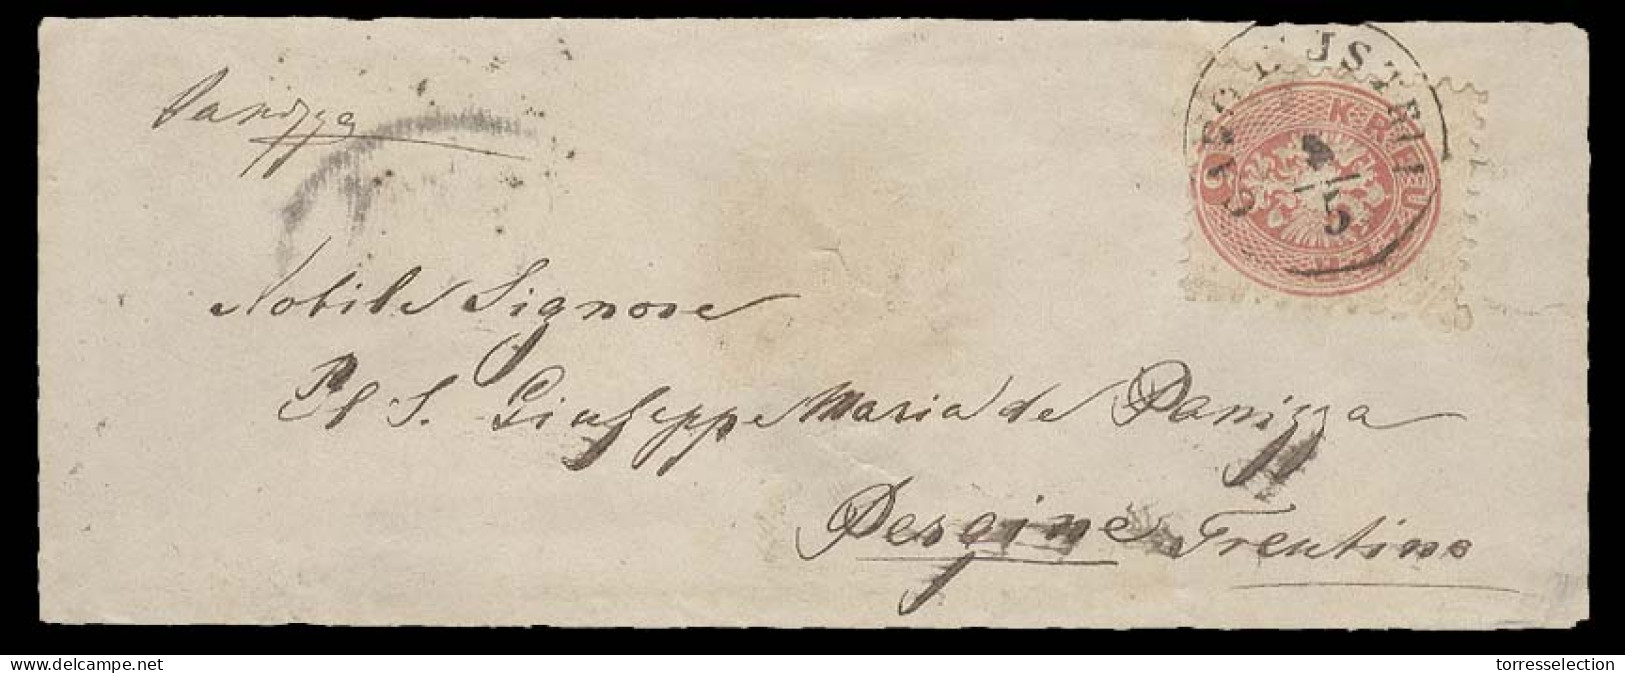 Panizza
KREUZER
5
4
5
Nobile Signore
Pl S. Giuseppe Maria de Panizza
Pergine Trentino
www.delcampe.net
torresselection